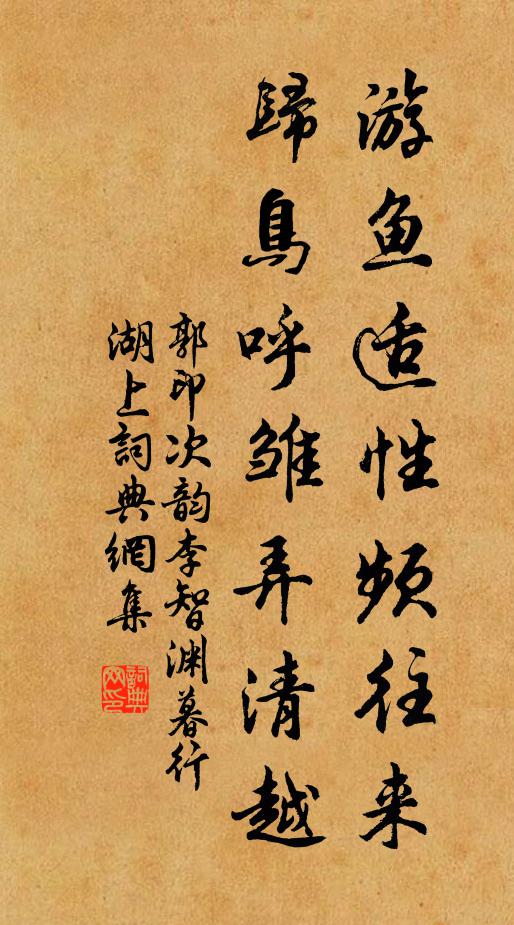 游鱼适性频往来
歸鳥呼雏弄清越
郭印次韵李智渊暮行
湖上詞典網集
詞典
网印